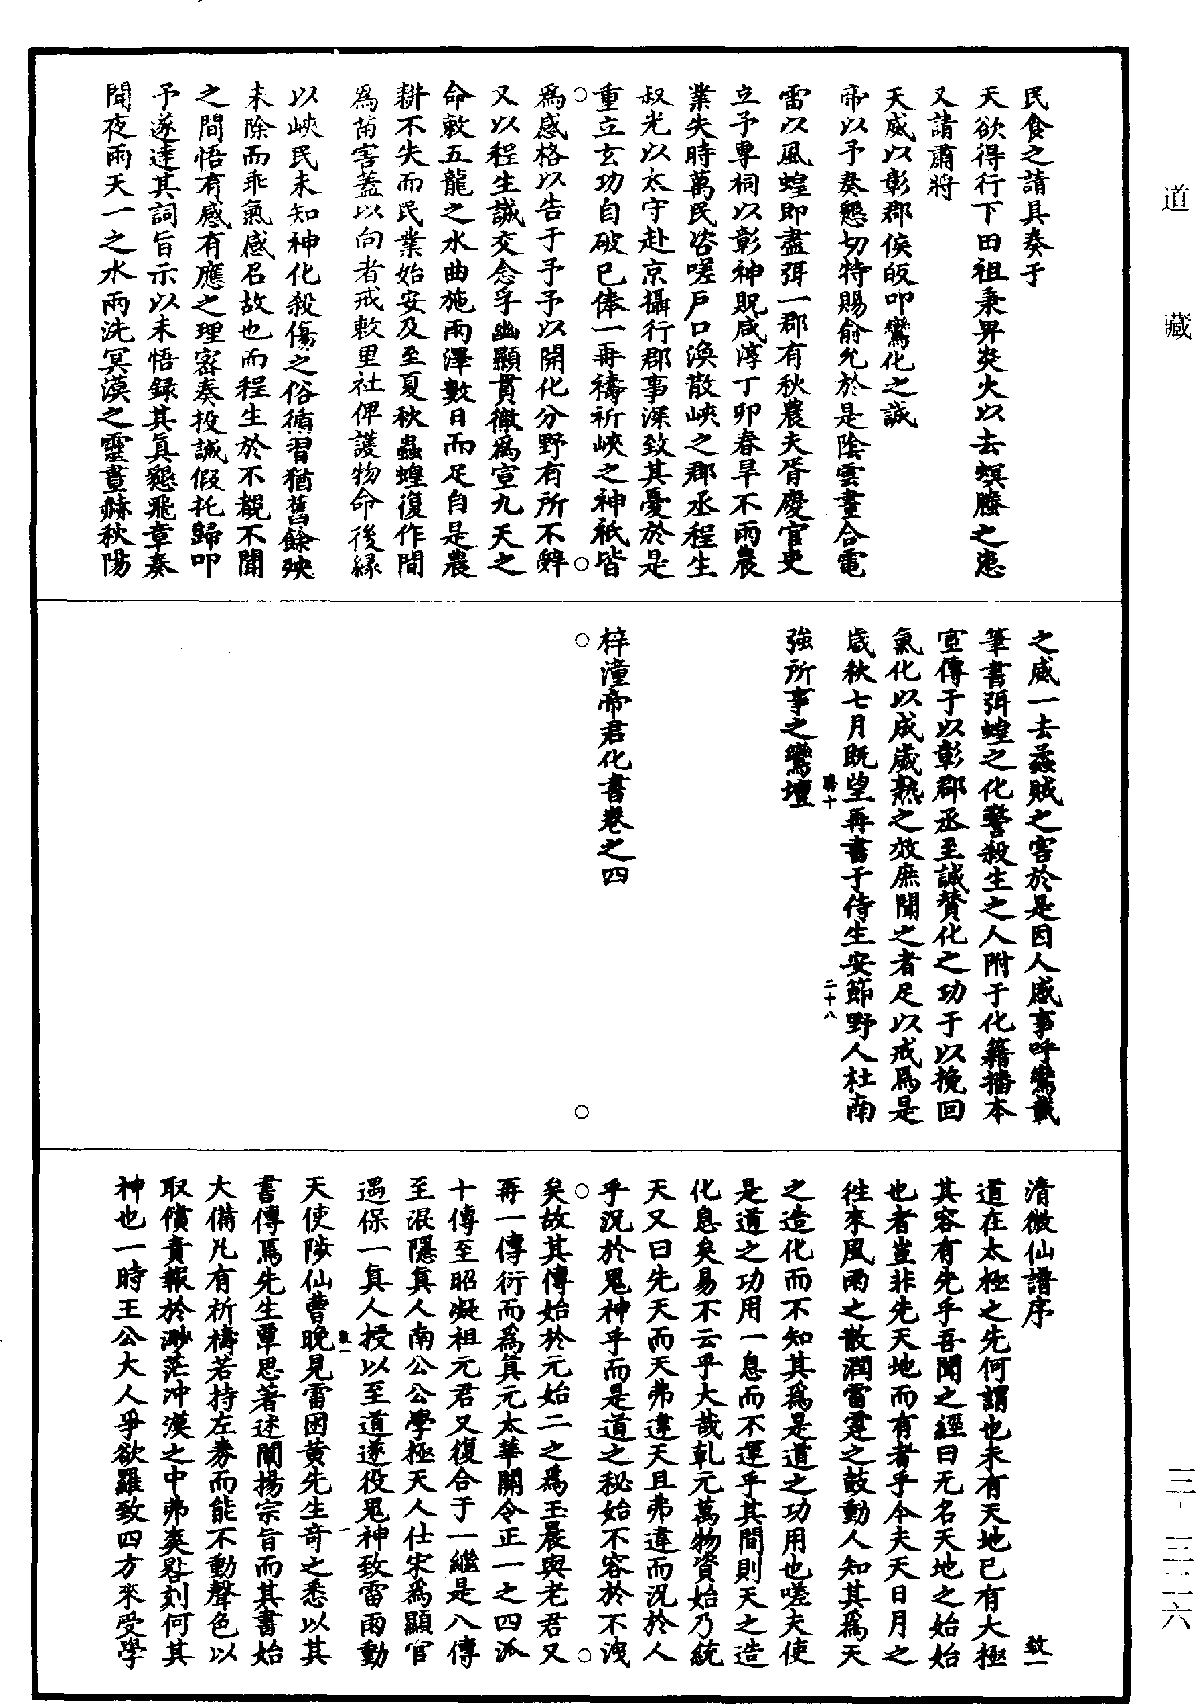 道藏
民食之請具奏于
天欲得行下田祖秉畀炎火以去螟螣之患
又請謝將
天威以彰郡侯皈叩鸞化之誠
帝以予奏懇切特賜俞允於是陰雲晝合電
雷以風蝗即盡弭一郡有秋農夫胥慶官吏
立予專祠以彰神貺咸淳丁卯春旱不雨農
業失時萬民咨嗟戶口渙散峽之郡丞程生
叔光以太守赴京攝行郡事深致其憂於是
重立玄功自破已俸一再禱祈峽之神祇皆
為感格以告于予予以開化分野有所不辭
又以程生誠交念孚幽顯貫徹為宣九天之
命敕五龍之水曲施雨澤數日而足自是農
耕不失而民業始安及至夏秋蟲蝗復作間
為菑害蓋以向者戒敕里社俾護物命後緣
以峽民未知神化殺傷之俗循習猶舊餘殃
未除而乖氣感召故也而程生於不覩不聞
之間悟有感有應之理密奏投誠假托歸叩
予遂達其詞旨示以未悟録其真懇飛章奏
聞夜雨天一之水雨洗冥漠之靈晝赫秋陽
之威一去蟊賊之害於是因人感事呼鸞戢
筆書弭蝗之化警殺生之人附于化籍播本
宣傳于以彰郡丞至誠贊化之功于以挽回
氣化以成歲熟之效庶聞之者足以戒焉是
歲秋七月既望再書于侍生安節野人杜南
二十八
強所事之鸞壇
梓潼帝君化書卷之四
清微仙譜序
道在太極之先何謂也未有天地已有太極
其容有先乎吾聞之經曰无名天地之始始
也者豈非先天地而有者乎今夫天日月之
往來風雨之散潤雷霆之鼓動人知其為天
之造化而不知其為是道之功用也嗟夫使
是道之功用一息而不運乎其間則天之造
化息矣易不云乎大哉乹元萬物資始乃統
天又曰先天而天弗違天且弗違而況於人
乎況於鬼神乎而是道之秘始不容於不洩
矣故其傳始於元始二之為玉晨與老君又
再一傳衍而為真元太華關令正一之四派
十傳至昭凝祖元君又復合于一繼是八傳
至混隱真人南公公學極天人仕宋為顯官
遇保一真人授以至道遂役鬼神致雷雨動
天使陟仙曹晚見雷困黃先生奇之悉以其
書傳焉先生覃思著述闡揚宗旨而其書始
大備凡有祈禱若持左券而能不動聲色以
取償責報於渺茫冲漠之中弗爽晷刻何其
神也一時王公大人爭欲羅致四方來受學
三-三二六